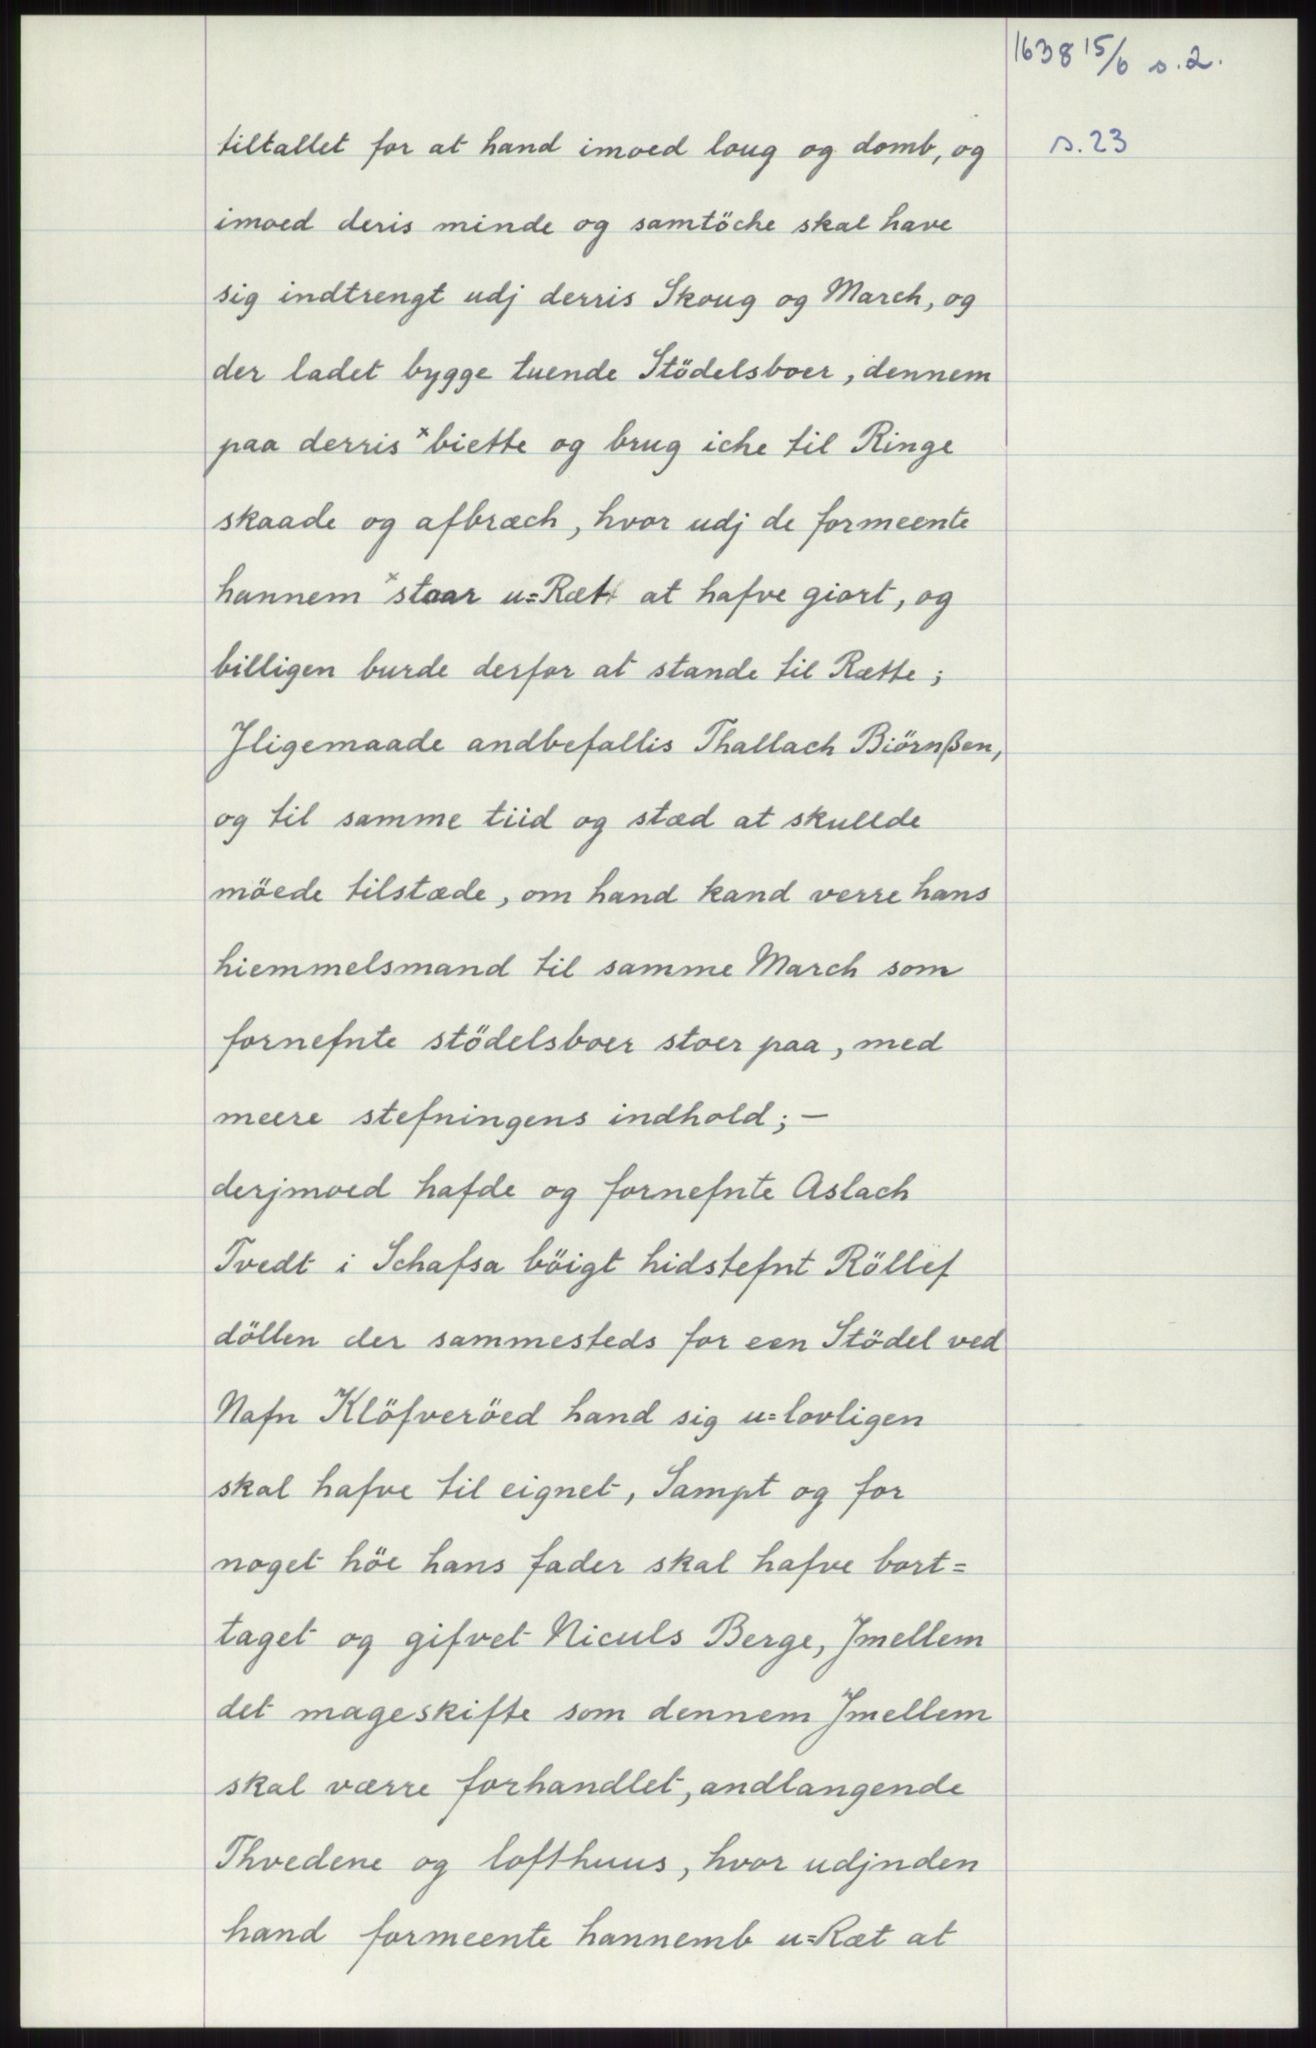 1638 15/6 s. 2.
s. 23
tiltallet for at hand imoed loug og domb, og
imoed deris minde og samtöche skal have
sig indtrengt udj derris Skoug og March, og
der ladet bygge tuende Stödelsboer, dennem
paa derris x biette og brug iche til Ringe
skaade og afbræch, hvor udj de formeente
hannem x staar u=Ræt at hafve giort, og
billigen burde derfor at stande til Rætte;
Jligemaade andbefallis Thallach Biörnßen,
og til samme tiid og stæd at skullde
möede tilstæde, om hand kand verre hans
hiemmelsmand til samme March som
fornefnte stödelsboer stoer paa, med
meere stefningens indhold; —
derjmoed hafde og fornefnte Aslach
Tvedt i Schafsa böigt hidstefnt Röllef
döllen der sammesteds for een Stödel ved
Nafn Klöfveröed hand sig u=lovligen
skal hafve til eignet, Sampt og for
noget höe hans fader skal hafve bort=
taget og gifvet Niculs Berge, Jmellem
det mageskifte som dennem Jmellem
skal værre forhandlet, andlangende
Thvedene og lofthuus, hvor udjnden
hand formeente hannemb u=Ræt at